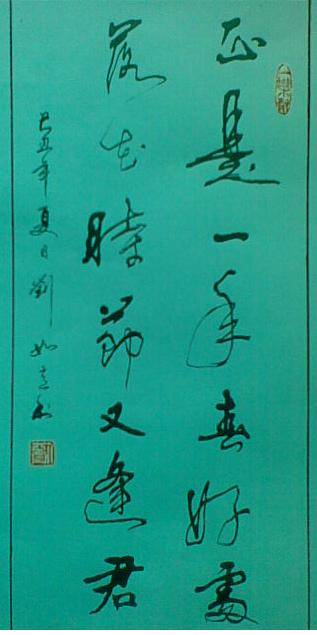 正是一年春好處
落花時節又逢君
己丑年夏日劉如